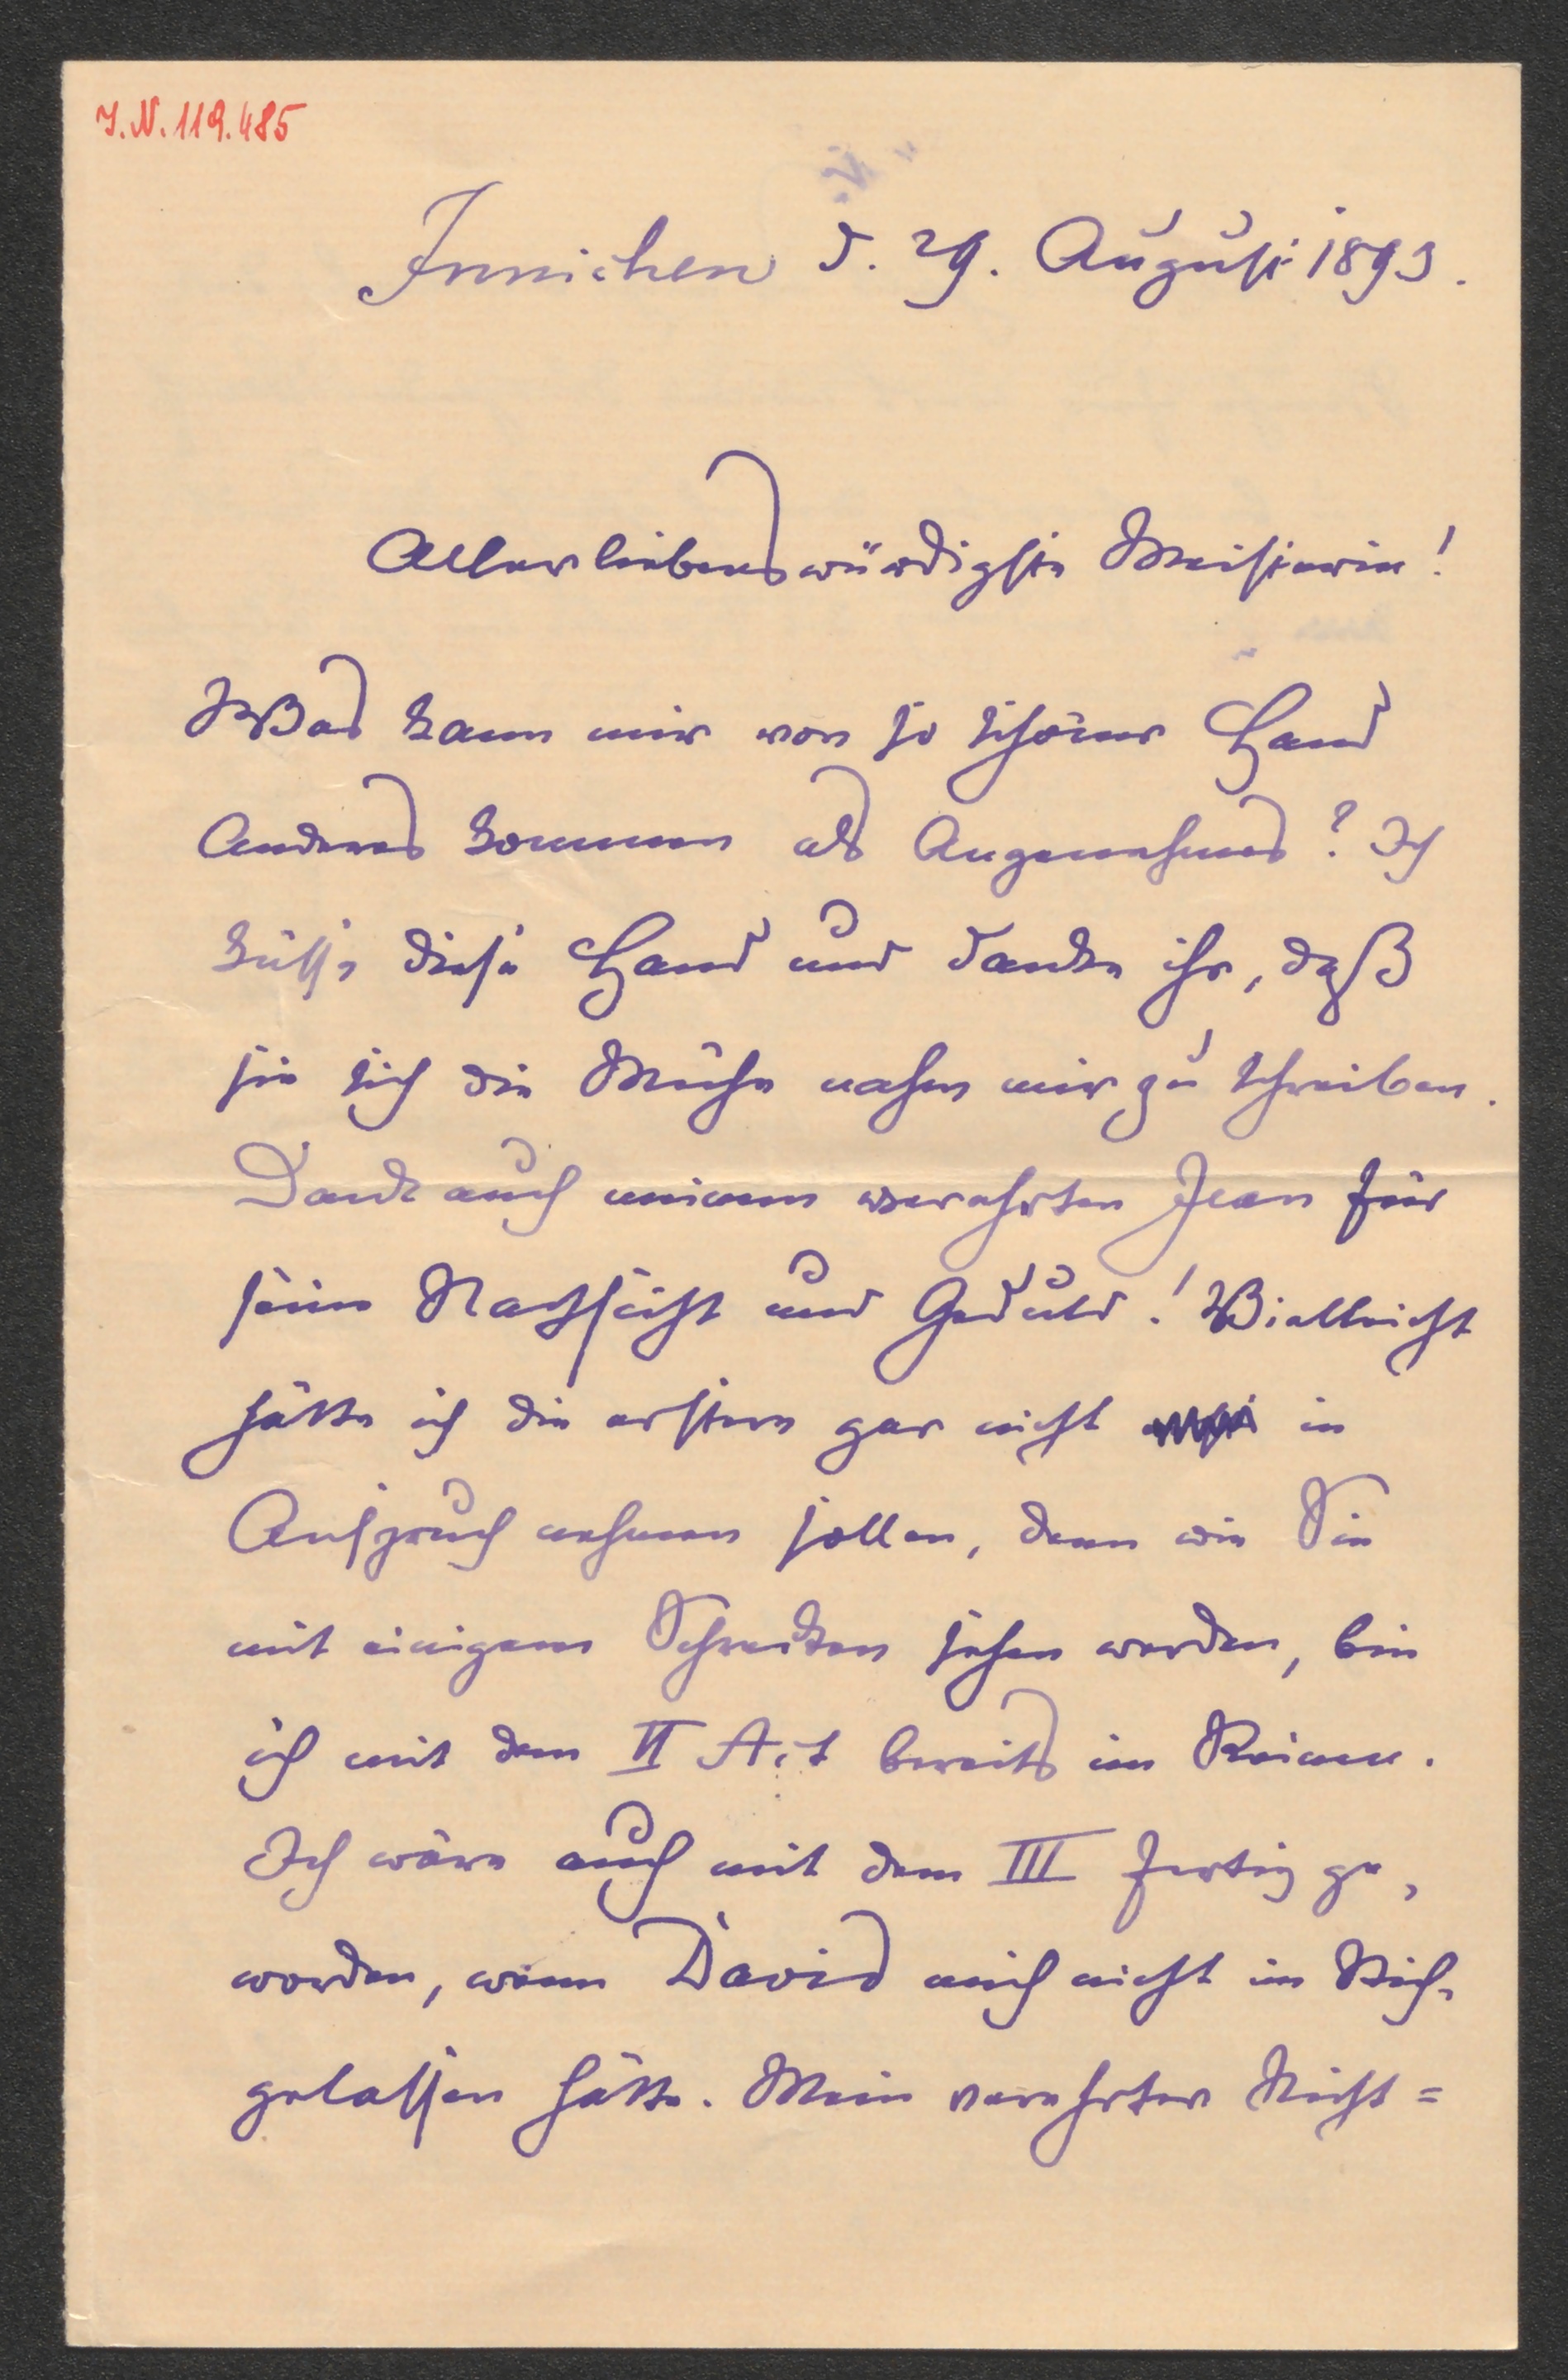 I.N.119.485
Innichen d. 29. August 1893.
Allerliebenswürdigste Meisterin!
Was kann mir von so schöner Hand
Anderes kommen als Angenehmes? Ich
küsse diese Hand und danke ihr, daß
sie sich die Mühe nahm mir zu schreiben.
Dank auch meinem verehrten Jean für
seine Nachsicht und Geduld! Vielleicht
hätte ich die erstere gar nicht in
Anspruch nehmen sollen, denn wie Sie
mit einigem Schrecken sehen werden, bin
ich mit dem II Act bereits im Reinen.
Ich wäre auch mit dem III fertig ge-
worden, wenn David mich nicht im Stich-
gelassen hätte. Mein verehrter